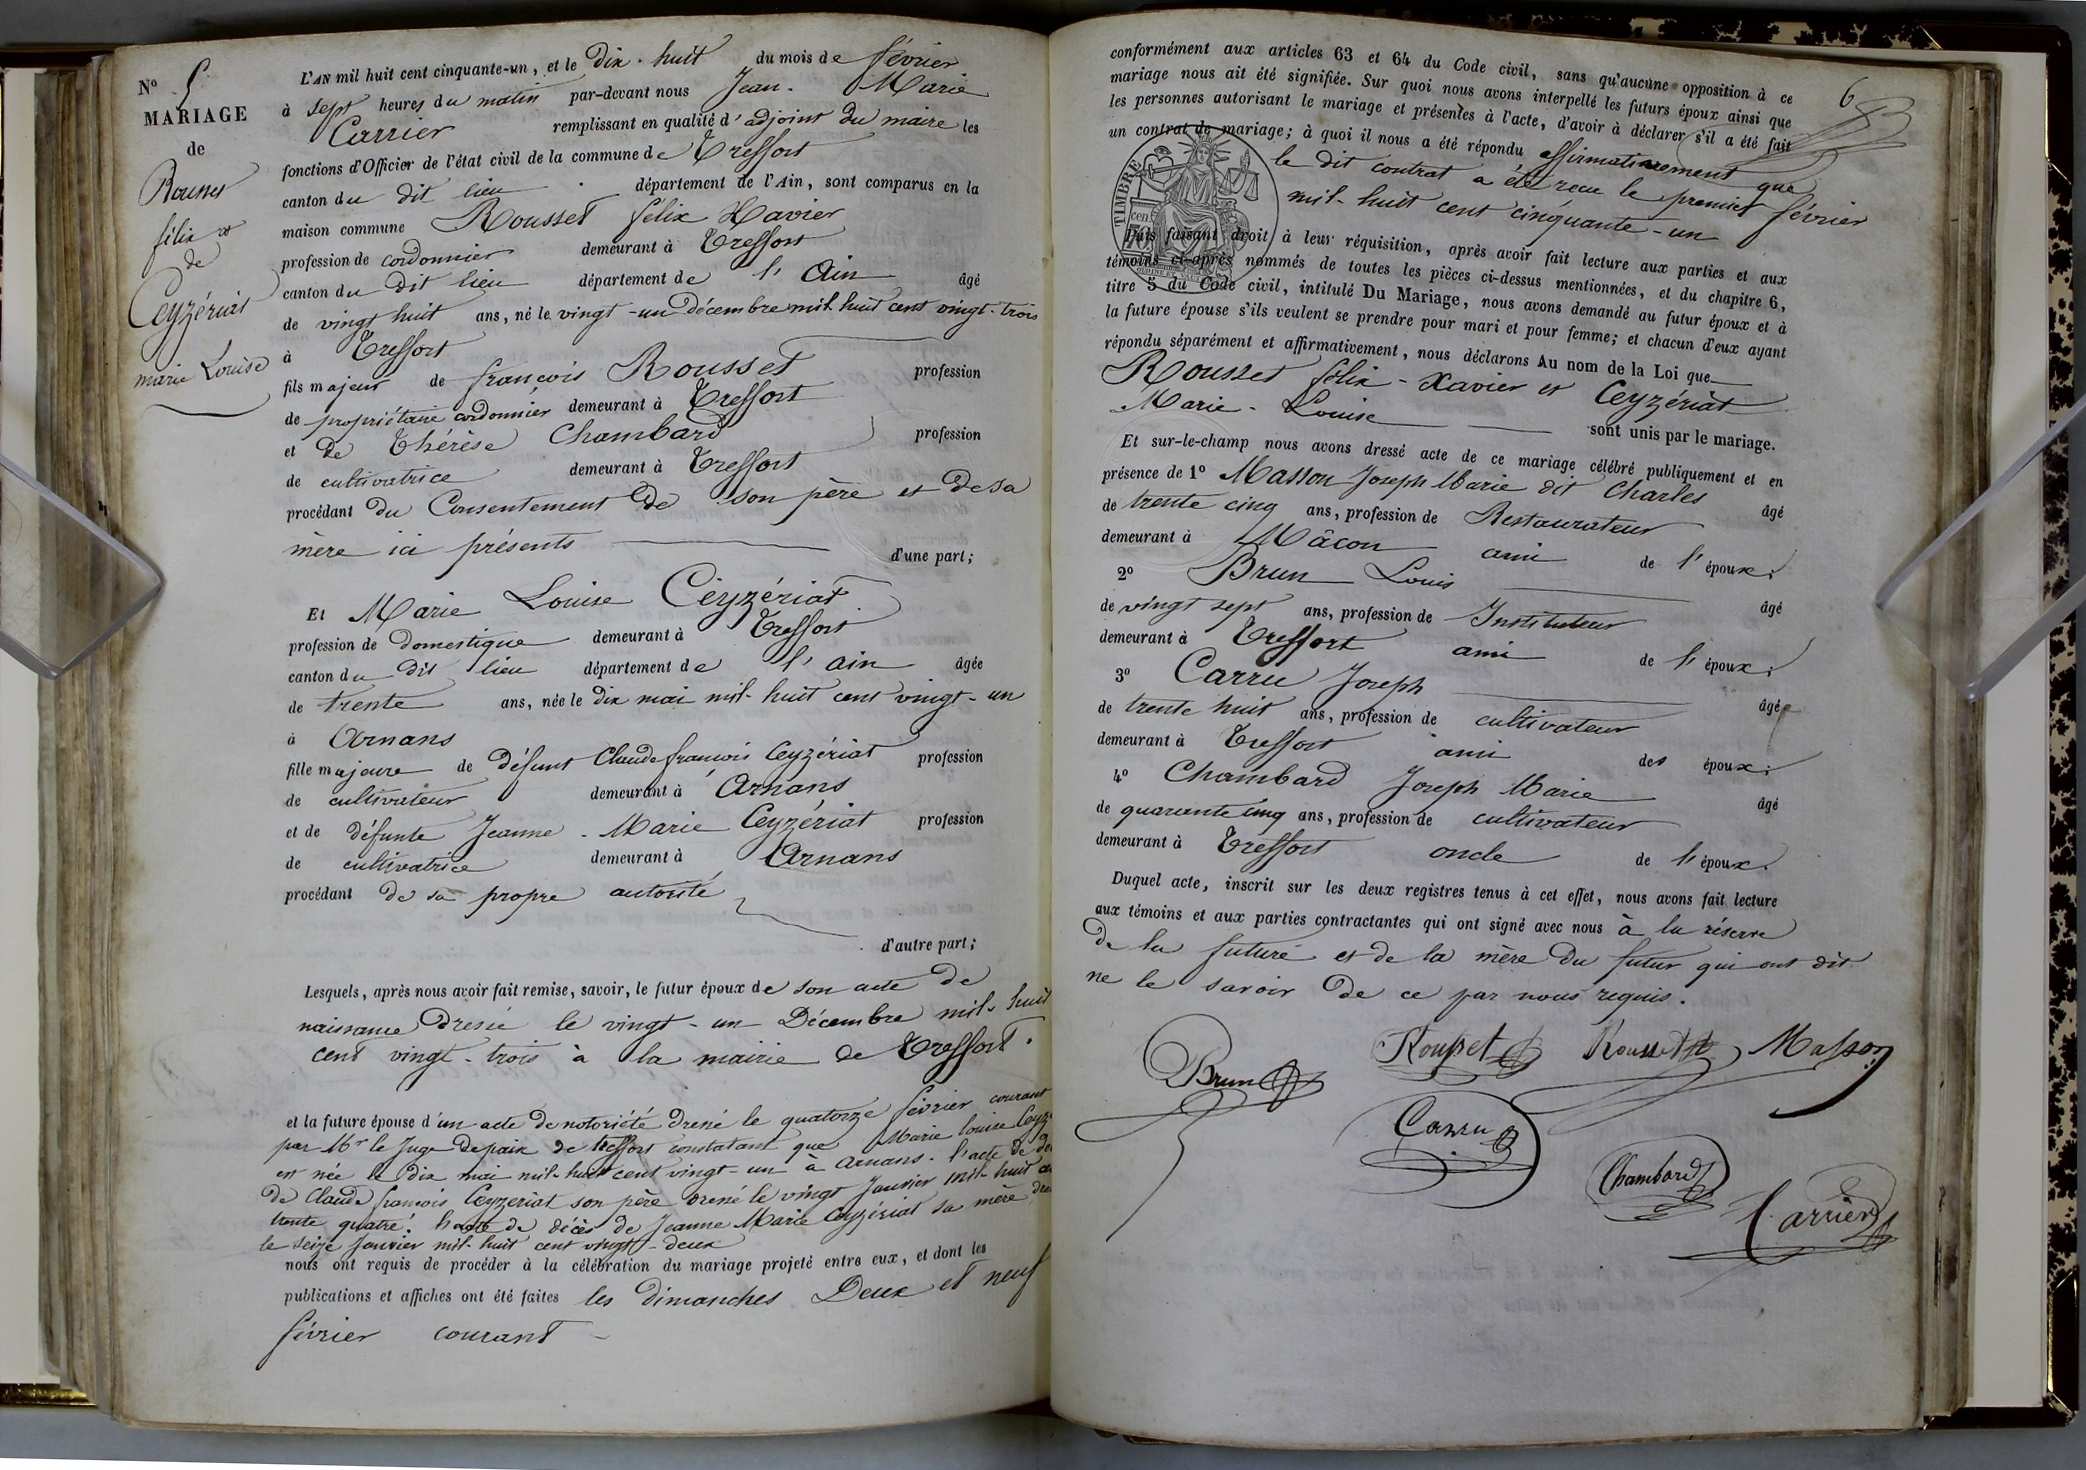 No 5
MARIAGE
de
Rousset
félix et
de
Ceyzériat
marie Louise
L'AN mil huit cent cinquante-un, et le dix-huit du mois de février
à sept heures du matin par-devant nous Jean-Marie
Carrier remplissant en qualité d'adjoint du maire les
fonctions d'Officier de l'état civil de la commune de Treffort
canton du dit lieu département de l'Ain, sont comparus en la
maison commune Rousset félix Xavier
profession de cordonnier demeurant à Treffort
canton du dit lieu département de l'Ain âgé
de vingt huit ans, né le vingt-un Décembre mil huit cent vingt-trois
à Treffort
fils majeur de françois Rousset profession
de propriétaire cordonnier demeurant à Treffort
et de Thérèse Chambard profession
de cultivatrice demeurant à Treffort
procédant du Consentement de son père et de sa
mère ici présents d'une part;
Et Marie Louise Ceyzériat
profession de domestique demeurant à Treffort
canton du dit lieu département de l'Ain âgée
de trente ans, née le dix mai mil-huit cent vingt-un
à Arnans
fille majeure de défunt Claude françois Ceyzériat profession
de cultivateur demeurant à Arnans
et de défunte Jeanne-Marie Ceyzériat profession
de cultivatrice demeurant à Arnans
procédant de sa propre autorité
d'autre part;
Lesquels, après nous avoir fait remise, savoir, le futur époux de son acte de
naissance dressé le vingt-un Décembre mil-huit
cent vingt-trois à la mairie de Treffort.
et la future épouse d'un acte de notoriété dressé le quatorze février courant
par Mr le Juge de paix de treffort constatant que Marie louise Ceyz
est née le dix mai mil-huit cent vingt-un à Arnans. L'acte de
de Claude françois Ceyzeriat son père dressé le vingt Janvier mil-huit
trente quatre. L'acte de décès de Jeanne Marie Ceyzériat sa mère
le seize Janvier mil-huit cent vingt-deux
nous ont requis de procéder à la célébration du mariage projeté entre eux, et dont les
publications et affiches ont été faites les dimanches Deux et neuf
février courant
6
conformément aux articles 63 et 64 du Code civil, sans qu'aucune opposition à ce
mariage nous ait été signifiée. Sur quoi nous avons interpellé les futurs époux ainsi que
les personnes autorisant le mariage et présentes à l'acte, d'avoir à déclarer s'il a été fait
un contrat de mariage; à quoi il nous a été répondu affirmativement que
le dit contrat a été recu le premier février
mil-huit cent cinquante-un
TIMBRE
Puis faisant droit à leur réquisition, après avoir fait lecture aux parties et aux
témoins ci-après nommés de toutes les pièces ci-dessus mentionnées, et du chapitre 6,
titre 5 du Code civil, intitulé Du Mariage, nous avons demandé au futur époux et à
la future épouse s'ils veulent se prendre pour mari et pour femme; et chacun d'eux ayant
répondu séparément et affirmativement, nous déclarons Au nom de la Loi que
Rousset félix-Xavier et Ceyzériat
Marie-Louise sont unis par le mariage.
Et sur-le-champ nous avons dressé acte de ce mariage célébré publiquement et en
présence de 1o Masson Joseph Marie dit Charles
de trente cinq ans, profession de Restaurateur âgé
demeurant à Mâcon ami de l'époux;
2o Brun Louis âgé
de vingt sept ans, profession de Instituteur
demeurant à Treffort ami de l'époux;
3o Carru Joseph âgé
de trente huit ans, profession de cultivateur
demeurant à Treffort ami des époux;
4o Chambard Joseph Marie âgé
de quarante cinq ans, profession de cultivateur
demeurant à Treffort oncle de l'époux.
Duquel acte, inscrit sur les deux registres tenus à cet effet, nous avons fait lecture
aux témoins et aux parties contractantes qui ont signé avec nous à la réserve
de la future et de la mère du futur qui ont dit
ne le savoir de ce par nous requis.
Brun Rousset Rousset Masson
Carru
Chambard
Carrier